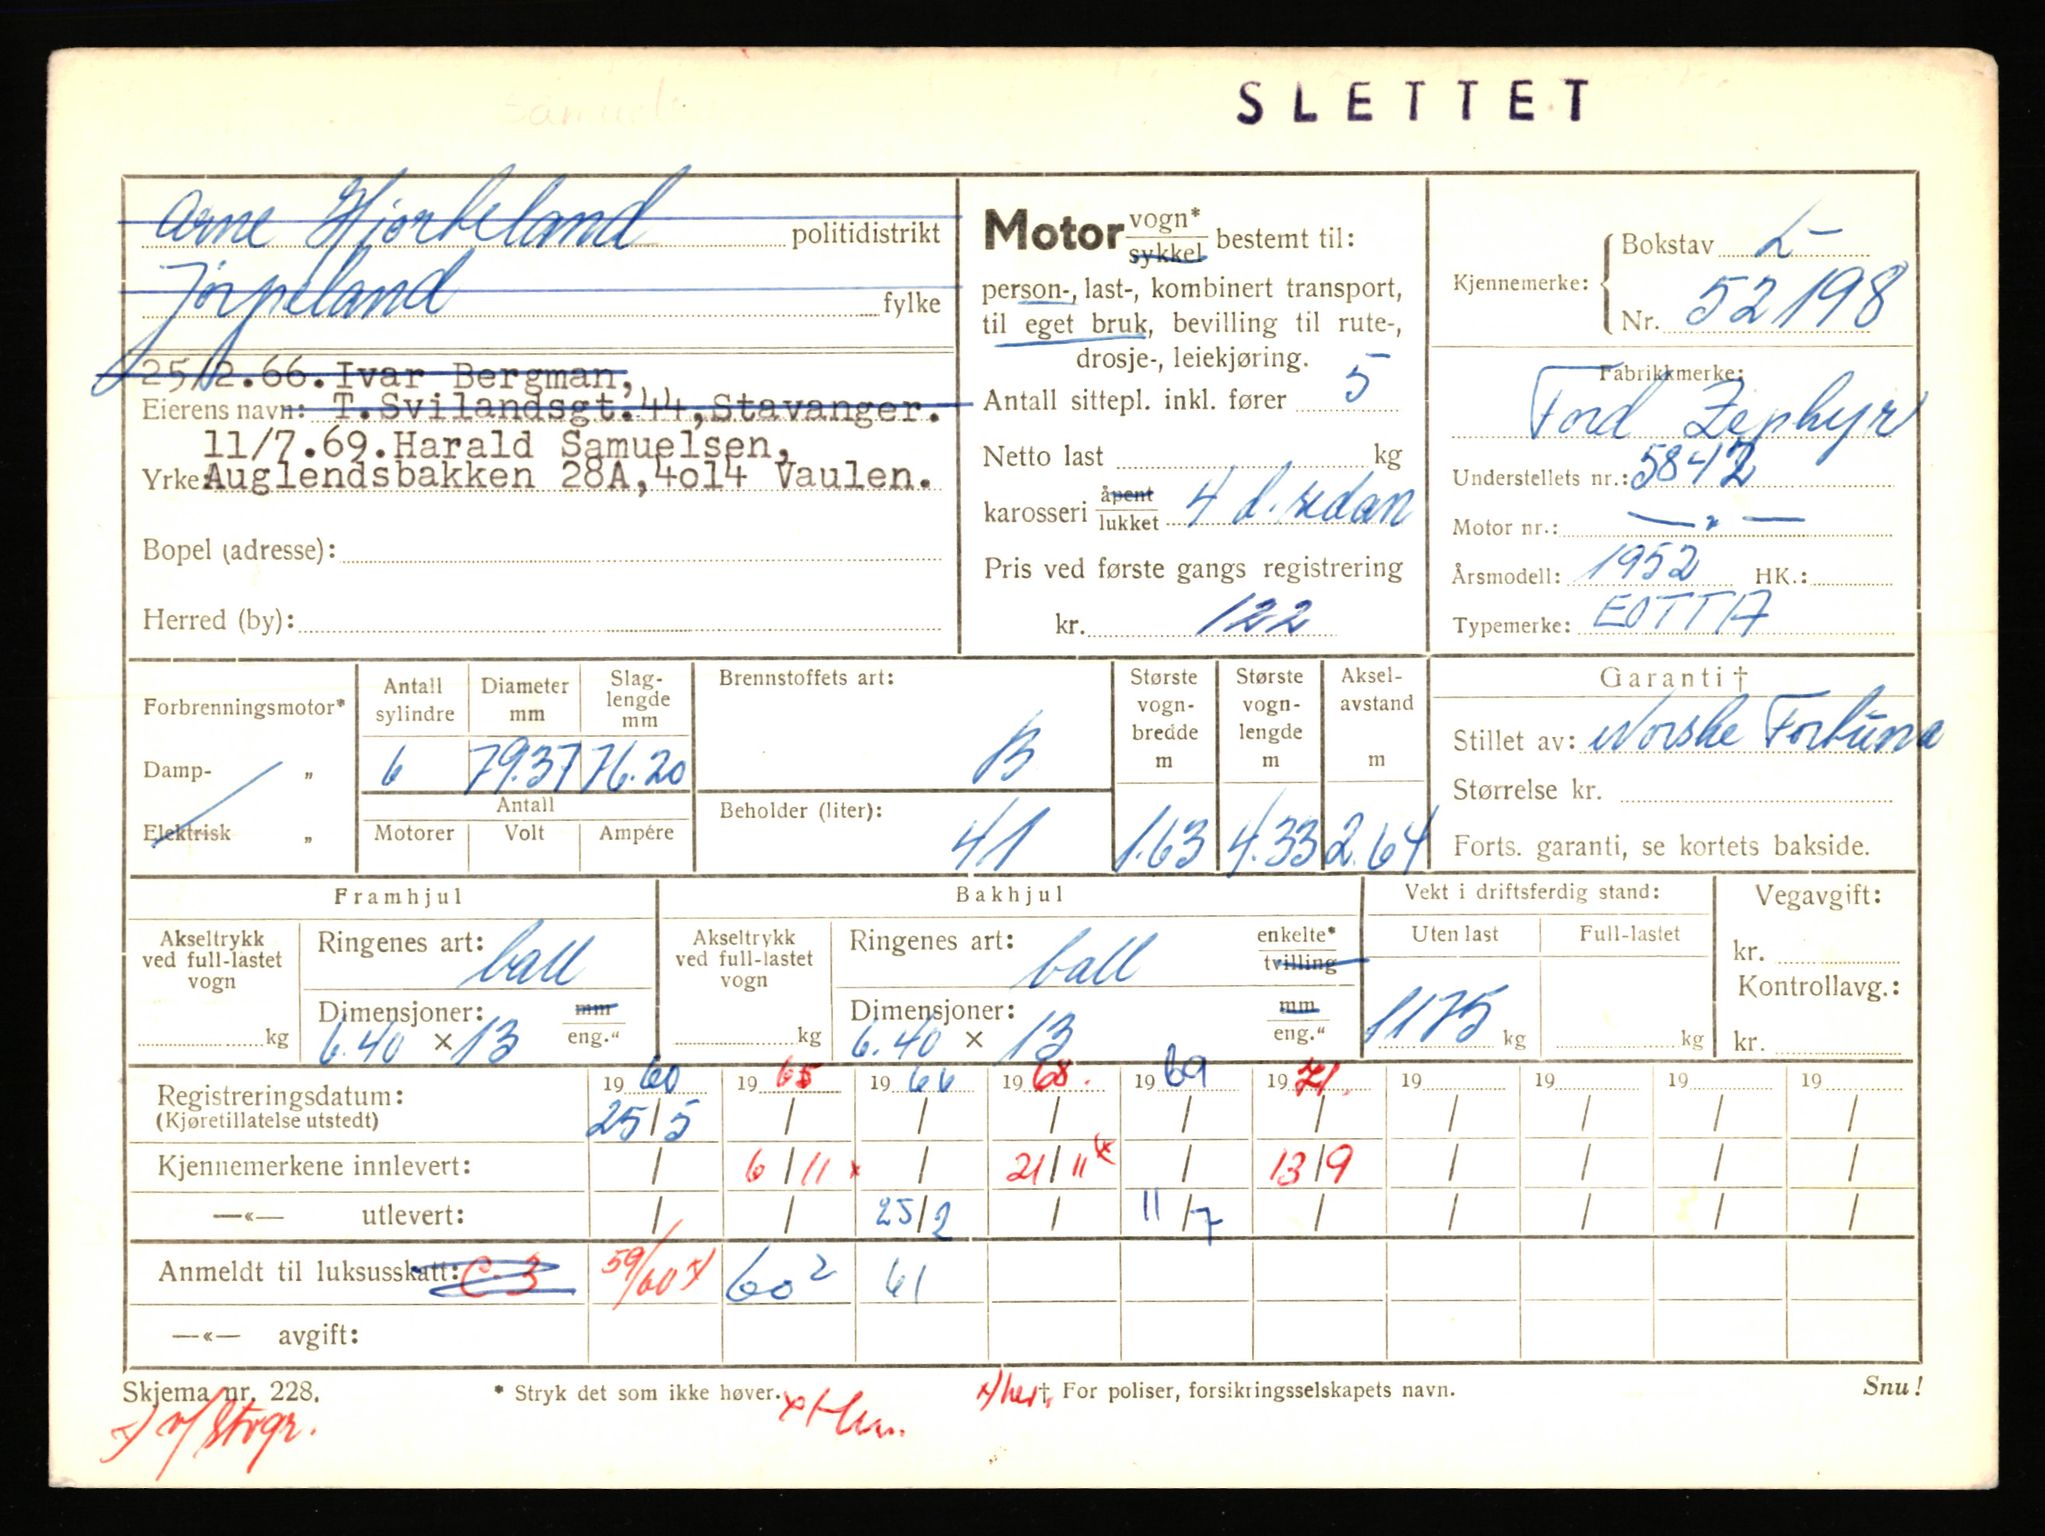 SLETTET
Arne Hjorteland politidistrikt
Jørpeland fylke
25/2.66. Ivar Bergman,
Eierens navn: T.Svilandsgt.44, Stavanger.
11/7.69. Harald Samuelsen,
Yrke: Auglendsbakken 28A, 4o14 Vaulen.
Bopel (adresse):
Herred (by):
Motor vogn* / sykkel bestemt til:
person-, last-, kombinert transport,
til eget bruk, bevilling til rute-,
drosje-, leiekjøring.
Antall sittepl. inkl. fører 5
Netto last kg
karosseri åpent / lukket 4 d. sedan
Pris ved første gangs registrering
kr. 122
Kjennemerke: Bokstav L-
Nr. 52198
Fabrikkmerke:
Ford Zephyr
Understellets nr.: 5842
Motor nr.: — " —
Årsmodell: 1952 HK.:
Typemerke: EOTTA
Forbrenningsmotor*
Damp- „
Elektrisk „
Antall sylindre 6
Diameter mm 79.37
Slaglengde mm 76.20
Antall
Motorer Volt Ampére
Brennstoffets art: B
Beholder (liter): 41
Største vognbredde m 1.63
Største vognlengde m 4.33
Akselavstand m 2.64
Garanti †
Stillet av: Norske Fortuna
Størrelse kr.
Forts. garanti, se kortets bakside.
Framhjul
Akseltrykk ved full-lastet vogn kg
Ringenes art: ball
Dimensjoner: mm / eng."
6.40 × 13
Bakhjul
Akseltrykk ved full-lastet vogn kg
Ringenes art: ball enkelte* / tvilling
Dimensjoner: mm / eng."
6.40 × 13
Vekt i driftsferdig stand:
Uten last Full-lastet
1175 kg kg
Vegavgift:
kr.
Kontrollavg.:
kr.
Registreringsdatum: 1960 1965 1966 1968. 1969 1971. 19 19 19 19
(Kjøretillatelse utstedt) 25/5 / / / / / / / / /
Kjennemerkene innlevert: / 6/11 x / 21/11 x / 13/9 / / / /
—«— utlevert: / / 25/2 / 11/7 / / / / /
Anmeldt til luksusskatt: C-3 59/60 x) 60² 61
—«— avgift:
Skjema nr. 228. * Stryk det som ikke høver. x)her. † For poliser, forsikringsselskapets navn. Snu!
x) v/ Stvgr.